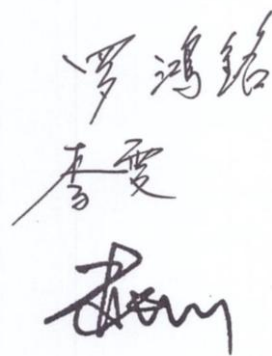 罗鸿铭
李雯